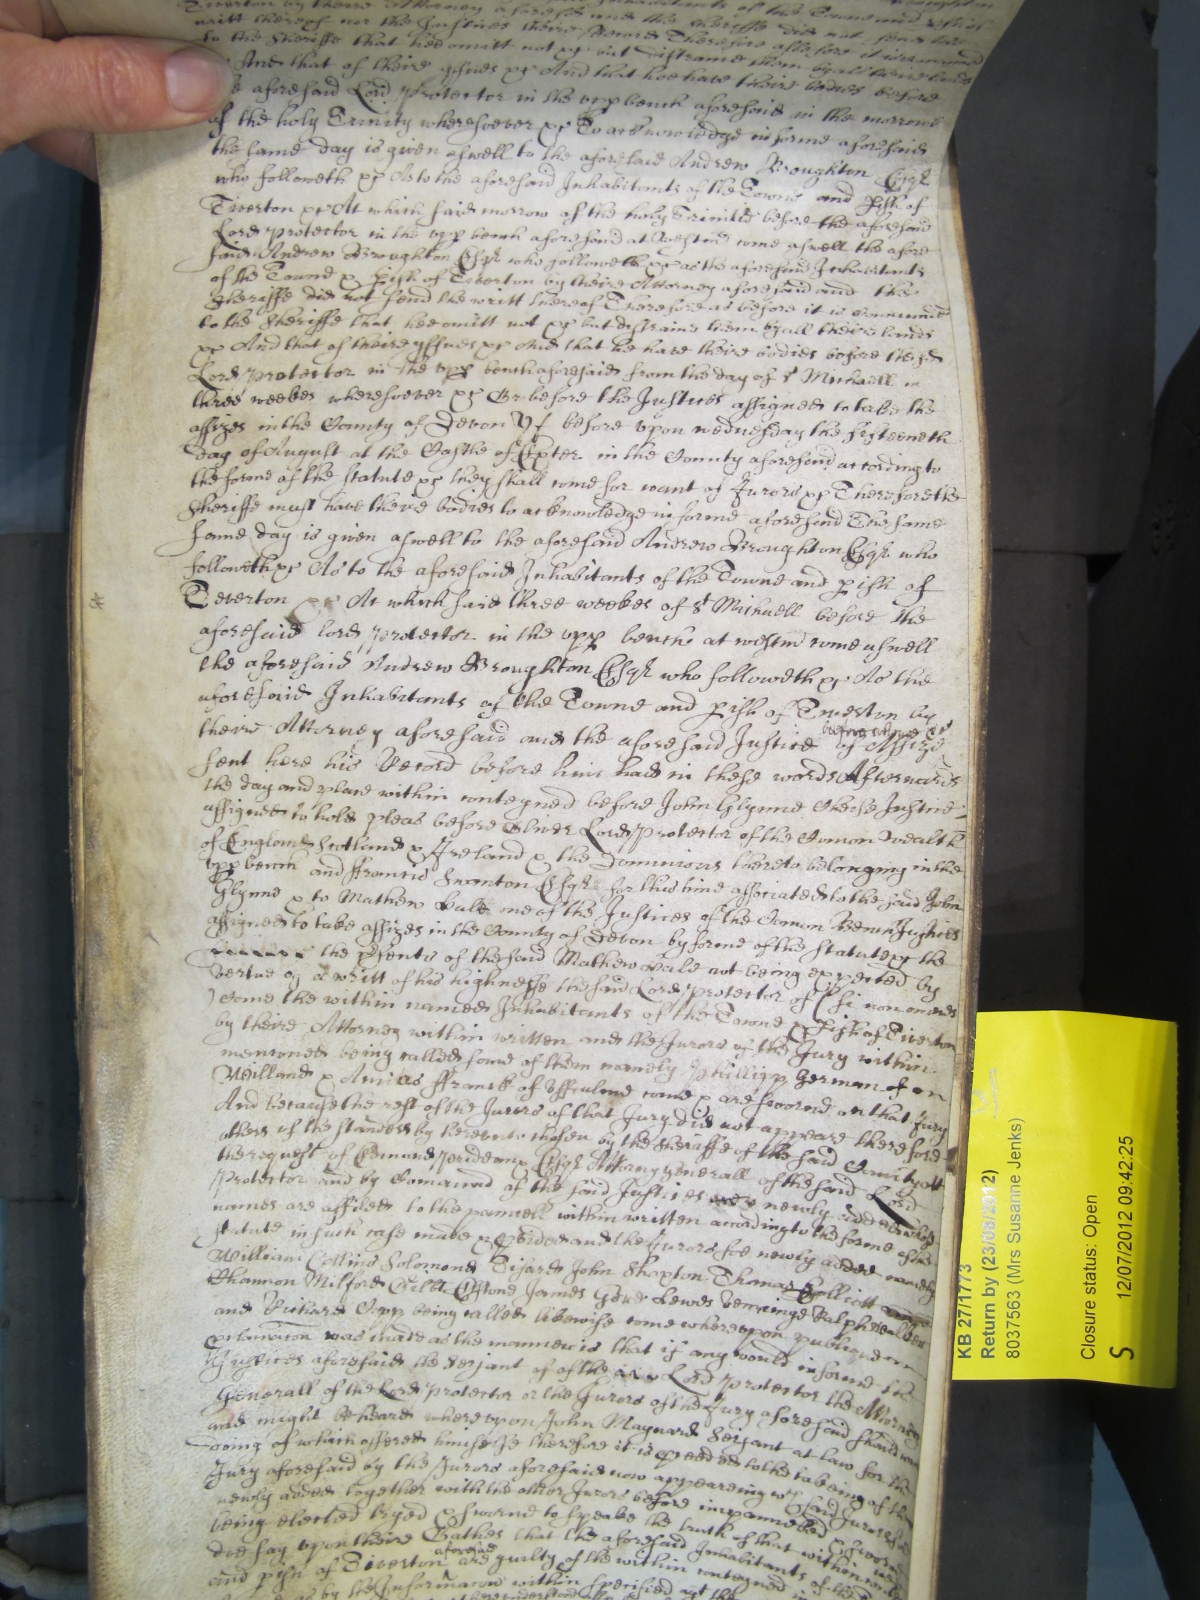 Tiverton by theire Attorney aforesaid and the Sheriffe did not send the
writt thereof nor the Justices theire Record Therefore as before it is comanded
to the Sheriffe that hee omitt not &c but distraine them by all their lands
And that of theire yssues &c And that hee have theire bodies before
aforesaid Lord Protector in the upp bench aforesaid in the morrow
of the holy Trinity wheresoever &c To acknowledge in forme aforesaid
the same day is given aswell to the aforesaid Andrew Broughton Esqr
who followeth &c As to the aforesaid Inhabitants of the Towne and pish of
Tiverton &c At which said morrow of the holy Trinitie before the aforesaid
Lord Protector in the upp bench aforesaid at Westmr come aswell the afore
said Andrew Broughton Esqr who followeth &c as the aforesaid Inhabitants
of the Towne & pish of Tiverton by theire Attorney aforesaid and the
Sheriffe did not send the writt thereof Therefore as before it is comanded
to the Sheriffe that hee omitt not &c but distraine them by all theire lands
&c And that of theire yssues &c And that he have theire bodies before the sd
Lord Protector in the upp bench aforesaid from the day of St Michaell in
three weekes wheresoever &c Or before the Justices assigned to take the
assizes in the County of Devon yf before upon wednesday the fifteeneth
day of August at the Castle of Exter in the County aforesaid according to
the forme of the statute &c they shall come for want of Jurors &c Therefore the
Sheriffe must have theire bodies to acknowledge in forme aforesaid The same
same day is given aswell to the aforesaid Andrew Broughton Esqr who
followeth &c As to the aforesaid Inhabitants of the Towne and pish of
Teverton &c At which said three weekes of St Michaell before the
aforesaid lord Protector in the upp bench at westmr come aswell
the aforesaid Andrew Broughton Esqr who followeth &c As the
aforesaid Inhabitants of the Towne and pish of Tiverton by
theire Attorney aforesaid and the aforesaid Justice of Assize
before whome &c
sent here his Record before him had in these words Afterwards
the day and place within conteyned before John Glynne Cheife Justice
assigned to hold pleas before Oliver Lord Protector of the Comon Wealth
of England Scotland & Ireland & the Dominions thereto belonging in the
upp bench and ffrancis Swanton Esqr for this time associated to the said John
Glynne & to Mathew Hale one of the Justices of the Comon Bench Justices
assigned to take assizes in the County of Devon by forme of the statute &c the
the psents of the said Mathew Hale not being expected by
vertue of a writt of his highnesse the said Lord Protector of Si non omnes
Come the within named Inhabitants of the Towne & pish of Tiverton
by theire Attorney within written and the Jurors of the Jury within
mentioned being called some of them namely Phillipp German of
Willand & Amias ffranck of Uffculme come & are sworne on that Jury
And because the rest of the Jurors of that Jury did not appeare therefore
others of the standers by hereunto chosen by the Sheriffe of the said County att
the request of Edmund Prideaux Esqr Attorny generall of the said Lord
Protector and by Comaund of the said Justices newly added whose
names are affiled to the pannell within written according to the forme of the
statute in such case made & pvided and the Jurors soe newly added namely
William Collins Solomon John Shapton Thomas
Shannon Milford James Lewes Ralph
and Richard being called likewise come whereupon publique
pclamacon was made as the manner is that if any would informe the
Justices aforesaid the Serjant of of the Lord Protector the Attorney
Generall of the Lord Protector or the Jurors of the Jury aforesaid should come
and might be heard whereupon John Maynard Serjant at law for the
doing of which offered himselfe therefore it is pceeded to the takeing of the
Jury aforesaid by the Jurors aforesaid now appeareing wch said Jurors soe
newly added together with the other Jurors before impannelled & sworne
being elected tryed & sworne to speake the truth of that within
doe say upon theire Oathes that the aforesaid Inhabitants of the
aforesaid
and pish of Tiverton are guilty of the within conteyned
as by the Informacon within specified agt the
KB 27/1773
Return by (23/08/2012)
8037563 (Mrs Susanne Jenks)
Closure status: Open
S 12/07/2012 09:42:25